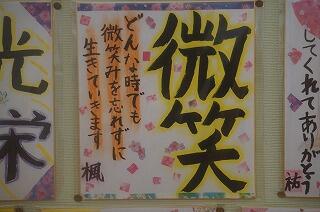 してくれてありがとう
祐
微笑
どんな時でも
微笑みを忘れずに
生きていきます
楓
光栄